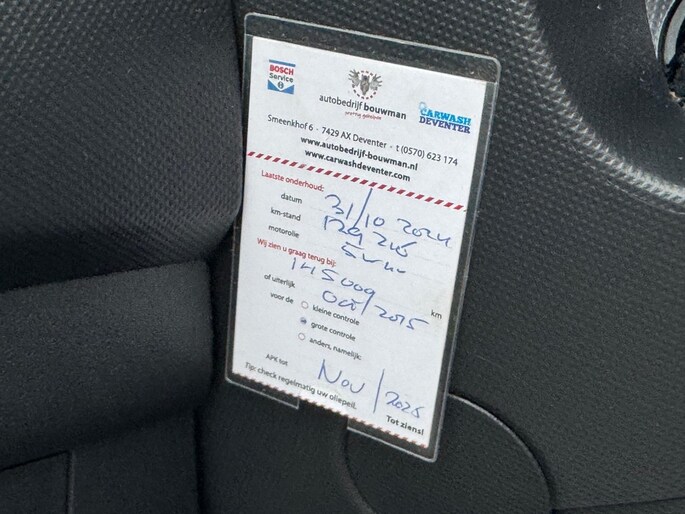 BOSCH
Service
autobedrijf bouwman
prettig geholpen
CARWASH
DEVENTER
Smeenkhof 6 · 7429 AX Deventer · t (0570) 623 174
www.autobedrijf-bouwman.nl
www.carwashdeventer.com
Laatste onderhoud:
datum 31/10 2024
km-stand 129 245
motorolie
Wij zien u graag terug bij:
145 000 km
of uiterlijk Oct/2025
voor de kleine controle
grote controle
anders, namelijk:
APK tot Nov/2025
Tip: check regelmatig uw oliepeil. Tot ziens!